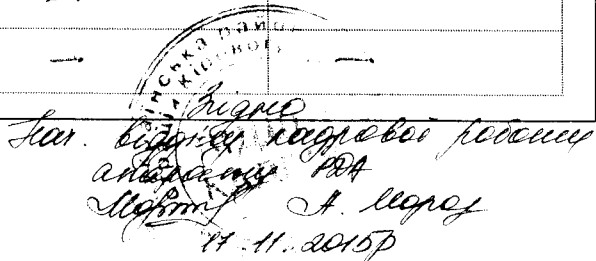 — —
Згідно
Нач. відділу кадрової роботи
апарату РДА
А. Мороз
17.11.2015р